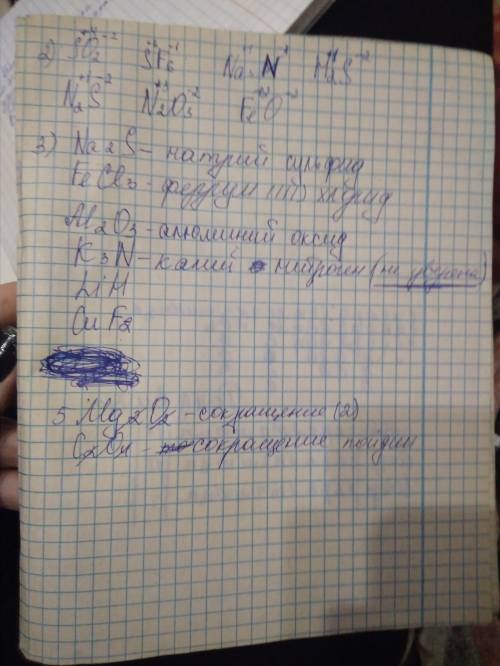 2) SO2 +4 -2 SF6 -1 Na3N +1
N2S +1 -2 N2O3 +3 -2 FeO +2 -2
3) Na2S - натрий сульфид
FeCl3 - феррум (III)
Al2O3 - алюминий оксид
K3N - калий нитроген (не уверена)
LiH
CuF2
5 Mg2O2 - сокращение (2)
C2O4 - сокращение